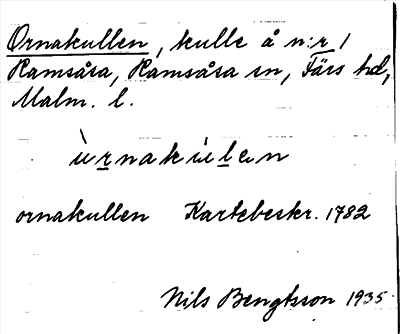 Ornakullen, kulle å n:r 1
Ramsåsa, Ramsåsa sn, Färs hd,
Malm. l.
ùrnakúlen
ornakullen Kartebeskr. 1782
Nils Bengtsson 1935